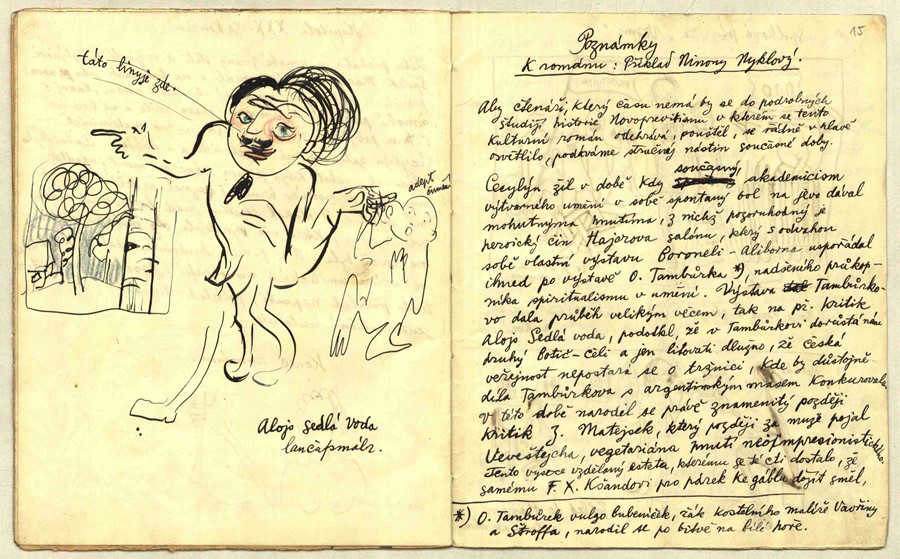 táto linyje zde.
adept
Alojs Sedlá Voda
lančápmálr.
15
Poznámky
K románu: Příklad Ninony Nyklový.
Aby čtenáři, který času nemá by se do podrobných
studijí historie Novoprevitismu v kterém se tento
kulturní román odehrává, pouštěl, se řádně v hlavě
osvětlilo, podáváme stručný nástin současné doby.
Cecylyn žil v době kdy současný akademicism
výtvarného umění v sobě spontaný bol na jevo dával
mohutnýma hnutíma, z nichž pozoruhodný je
heroický čin Hajerova salónu, který s odvahou
sobě vlastní výstavu Boroneli-Aliborna uspořádal
ihned po výstavě O. Tambůrka *), nadšeního průkop-
níka spiritualismu v umění. Výstava Tambůrko-
vo dala průběh velikým věcem, tak na př. kritik
Alojs Sedlá voda, podotkl, že v Tambůrkovi dorůstá nám
druhý Botič-čéli a jen litovati dlužno, že česká
veřejnost nepostará se o tržnici, kde by důstojně
díla Tambůrkova s argentinským masem konkurovala
v této době narodél se právě znamenitý později
kritik J. Matějsek, který později za muzě pojal
Vevěštejcha, vegetariána hnutí neoimpresionistického.
Tento vysoce vzdělaný esteta, kterému se té cti dostalo, že
samému F. X. Kšandovi pro párek ke gáblu dojít směl,
*) O. Tambůrek vulgo bubeníček, žák kostelního malíře Vavřiny
a Štroffa, narodil se po bitvě na bílé hoře.